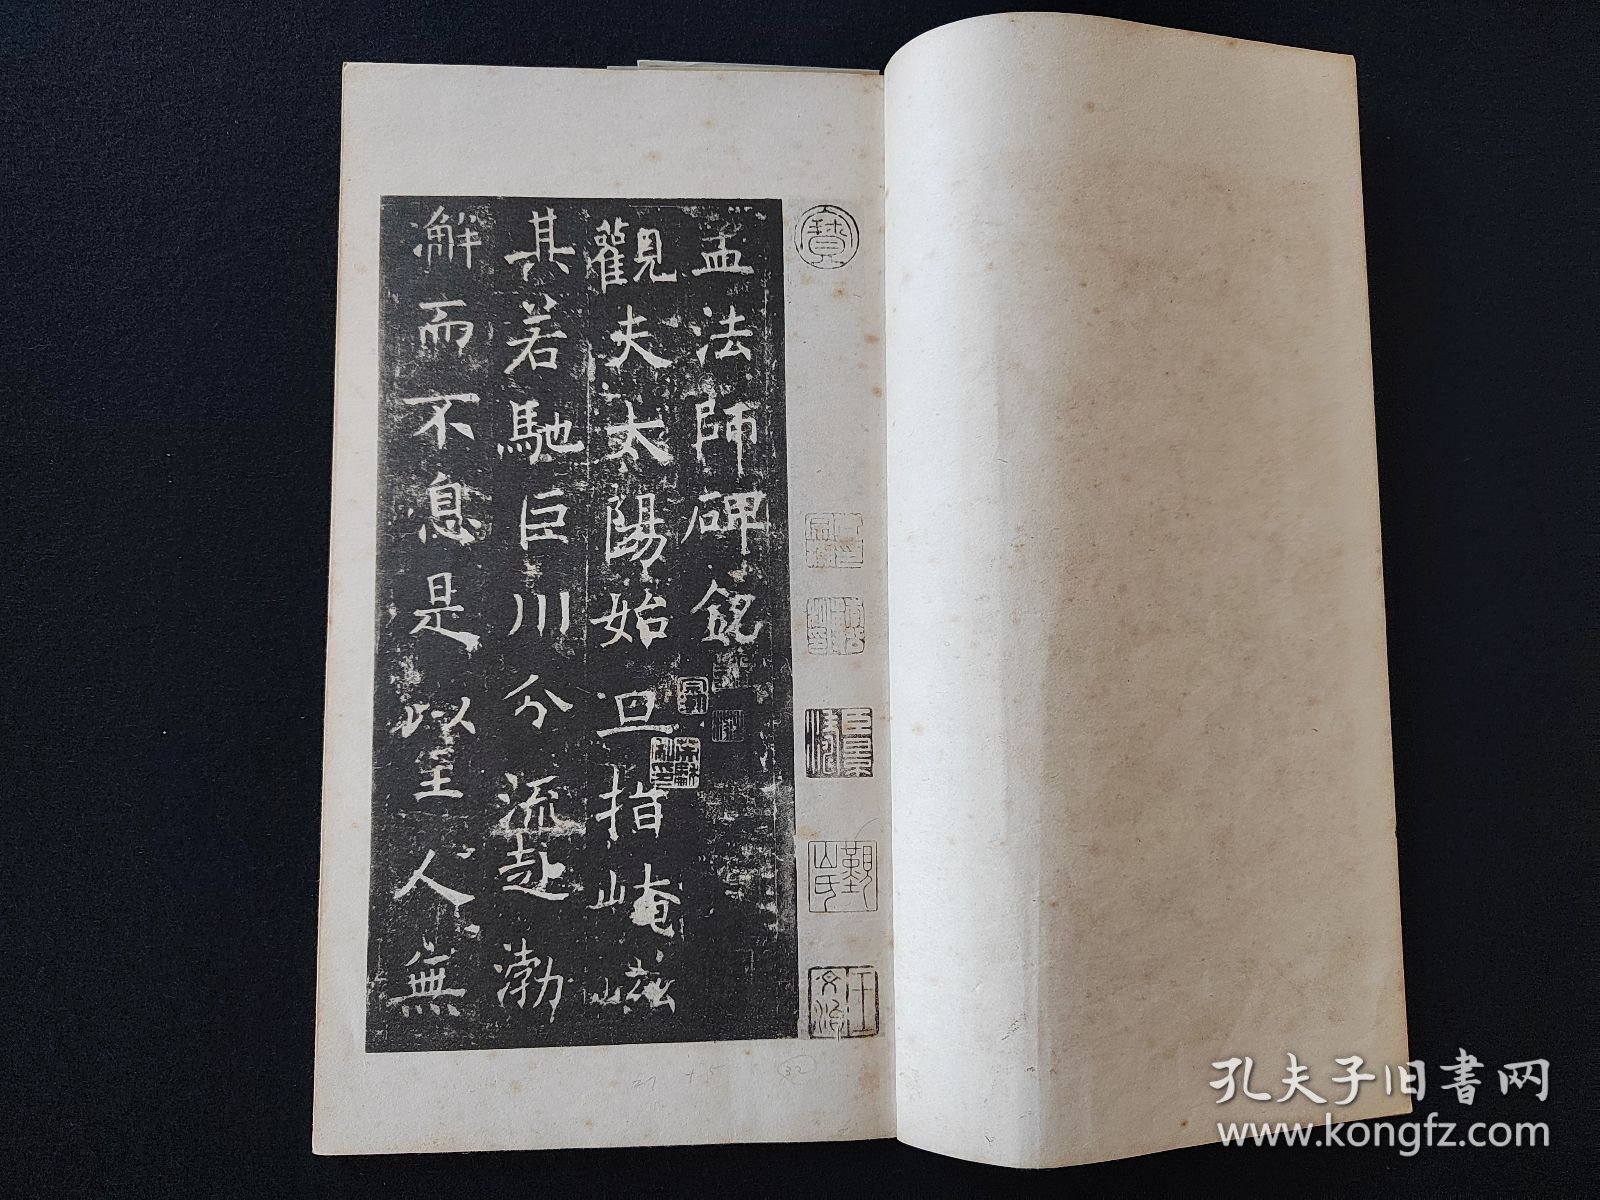 孟法師碑銘
觀夫太陽始旦指崦嵫
其若馳巨川分流赴渤
澥而不息是以至人無
寶
王文治
孔夫子旧书网
www.kongfz.com